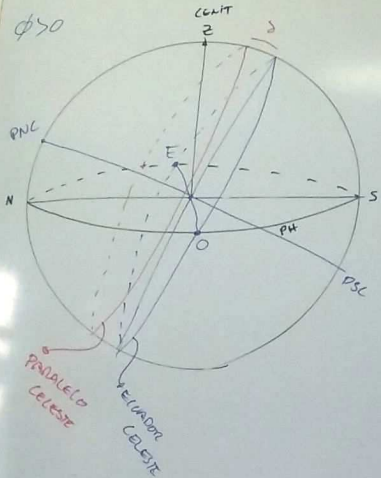 φ>0
CENIT
Z
δ
PNC
E
N
S
O
PH
PSC
PARALELO
CELESTE
ECUADOR
CELESTE